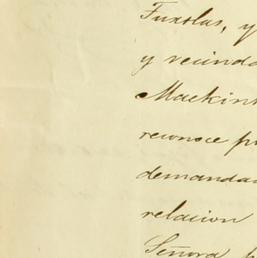 y
y vecinda
Mackin
reconoce p
demanda
relacion
Señora